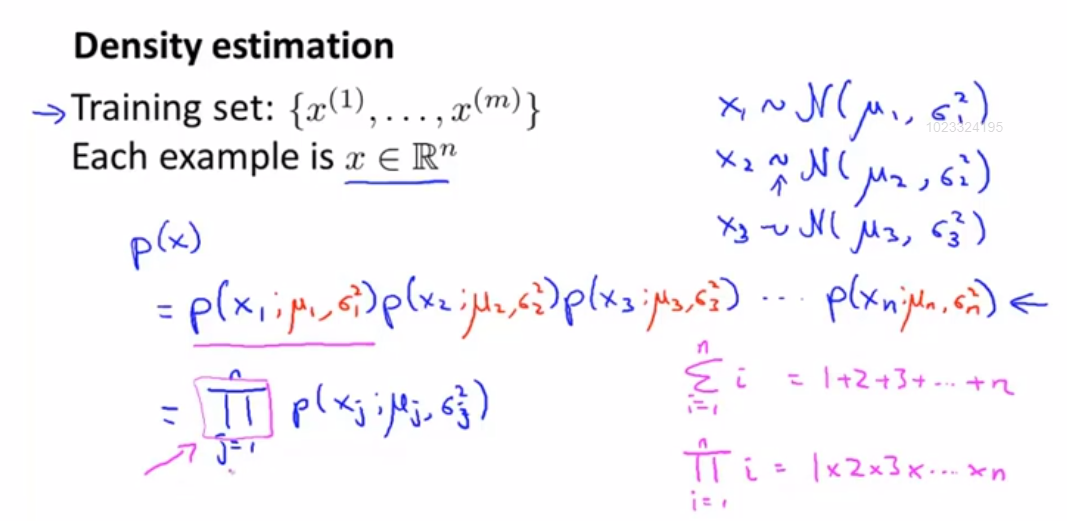 Density estimation
→ Training set: {x⁽¹⁾, . . . , x⁽ᵐ⁾}
Each example is x ∈ ℝⁿ
x₁ ~ N(μ₁, σ₁²)
1023324195
x₂ ~ N(μ₂, σ₂²)
↑
x₃ ~ N(μ₃, σ₃²)
p(x)
= p(x₁; μ₁, σ₁²) p(x₂; μ₂, σ₂²) p(x₃; μ₃, σ₃²) ··· p(xₙ; μₙ, σₙ²) ←
= ∏ⁿⱼ₌₁ p(xⱼ; μⱼ, σⱼ²)
∑ⁿᵢ₌₁ i = 1+2+3+···+n
∏ⁿᵢ₌₁ i = 1×2×3×···×n